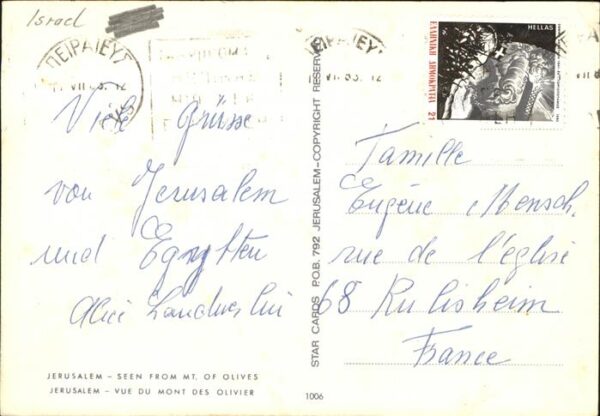 Israel
ΠΕΙΡΑΙΕΥΣ
ΠΕΙΡΑΙΕΥΣ
VII 83. 12
VII 83. 12
HELLAS
ΕΛΛΗΝΙΚΗ ΔΗΜΟΚΡΑΤΙΑ
Viele Grüsse
von Jerusalem
und Egypten
Alice
Famille
Eugène Mensch
rue de l'église
68 Rulisheim
France
STAR CARDS P.O.B. 792 JERUSALEM—COPYRIGHT RESERVED
JERUSALEM – SEEN FROM MT. OF OLIVES
JERUSALEM – VUE DU MONT DES OLIVIER
1006